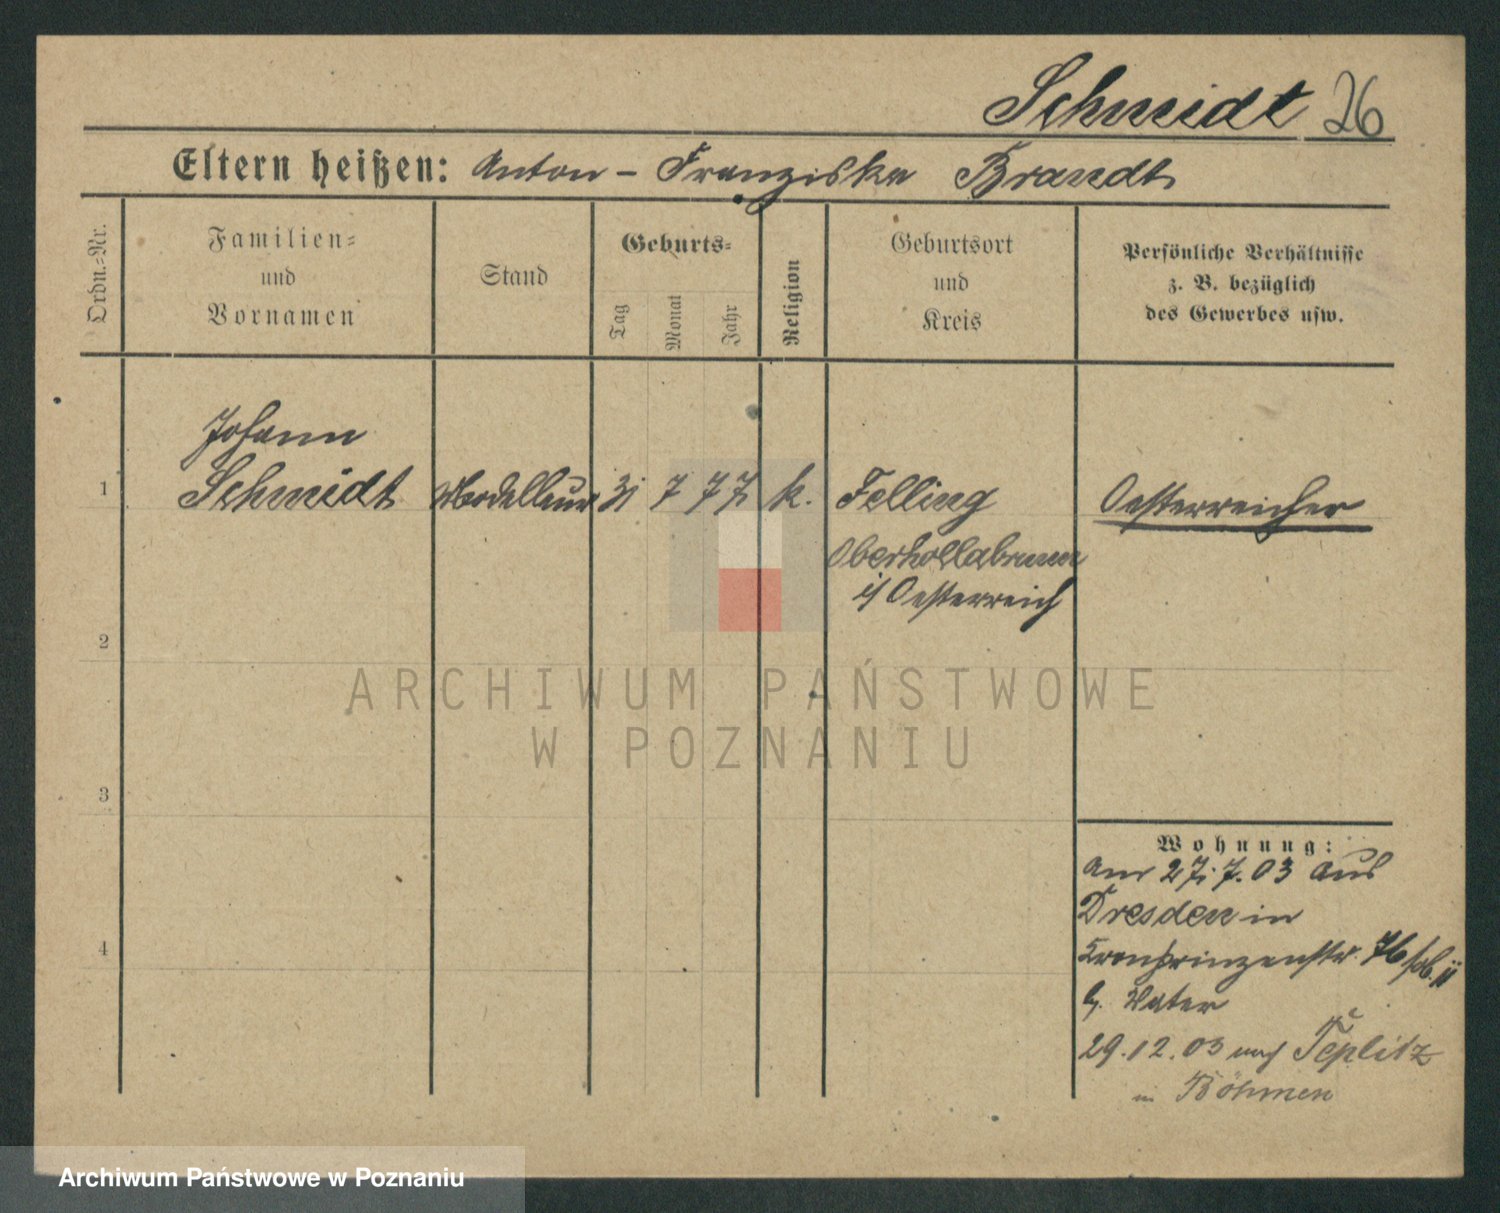 Schmidt 26
Eltern heißen: Anton - Franziska Brandt
Ordn.=Nr.
Familien=
und
Vornamen
Stand
Geburts=
Tag
Monat
Jahr
Religion
Geburtsort
und
Kreis
Persönliche Verhältnisse
z. B. bezüglich
des Gewerbes usw.
Johann
1 Schmidt Modelleur 31 7 77 k. Felling Oesterreicher
Oberhollabrunn
i/ Oesterreich
2
3
4
Wohnung:
am 27.7.03 aus
Dresden in
Kronprinzenstr. 76
b. Vater
29.12.03 nach Teplitz
in Böhmen
ARCHIWUM PAŃSTWOWE
W POZNANIU
Archiwum Państwowe w Poznaniu